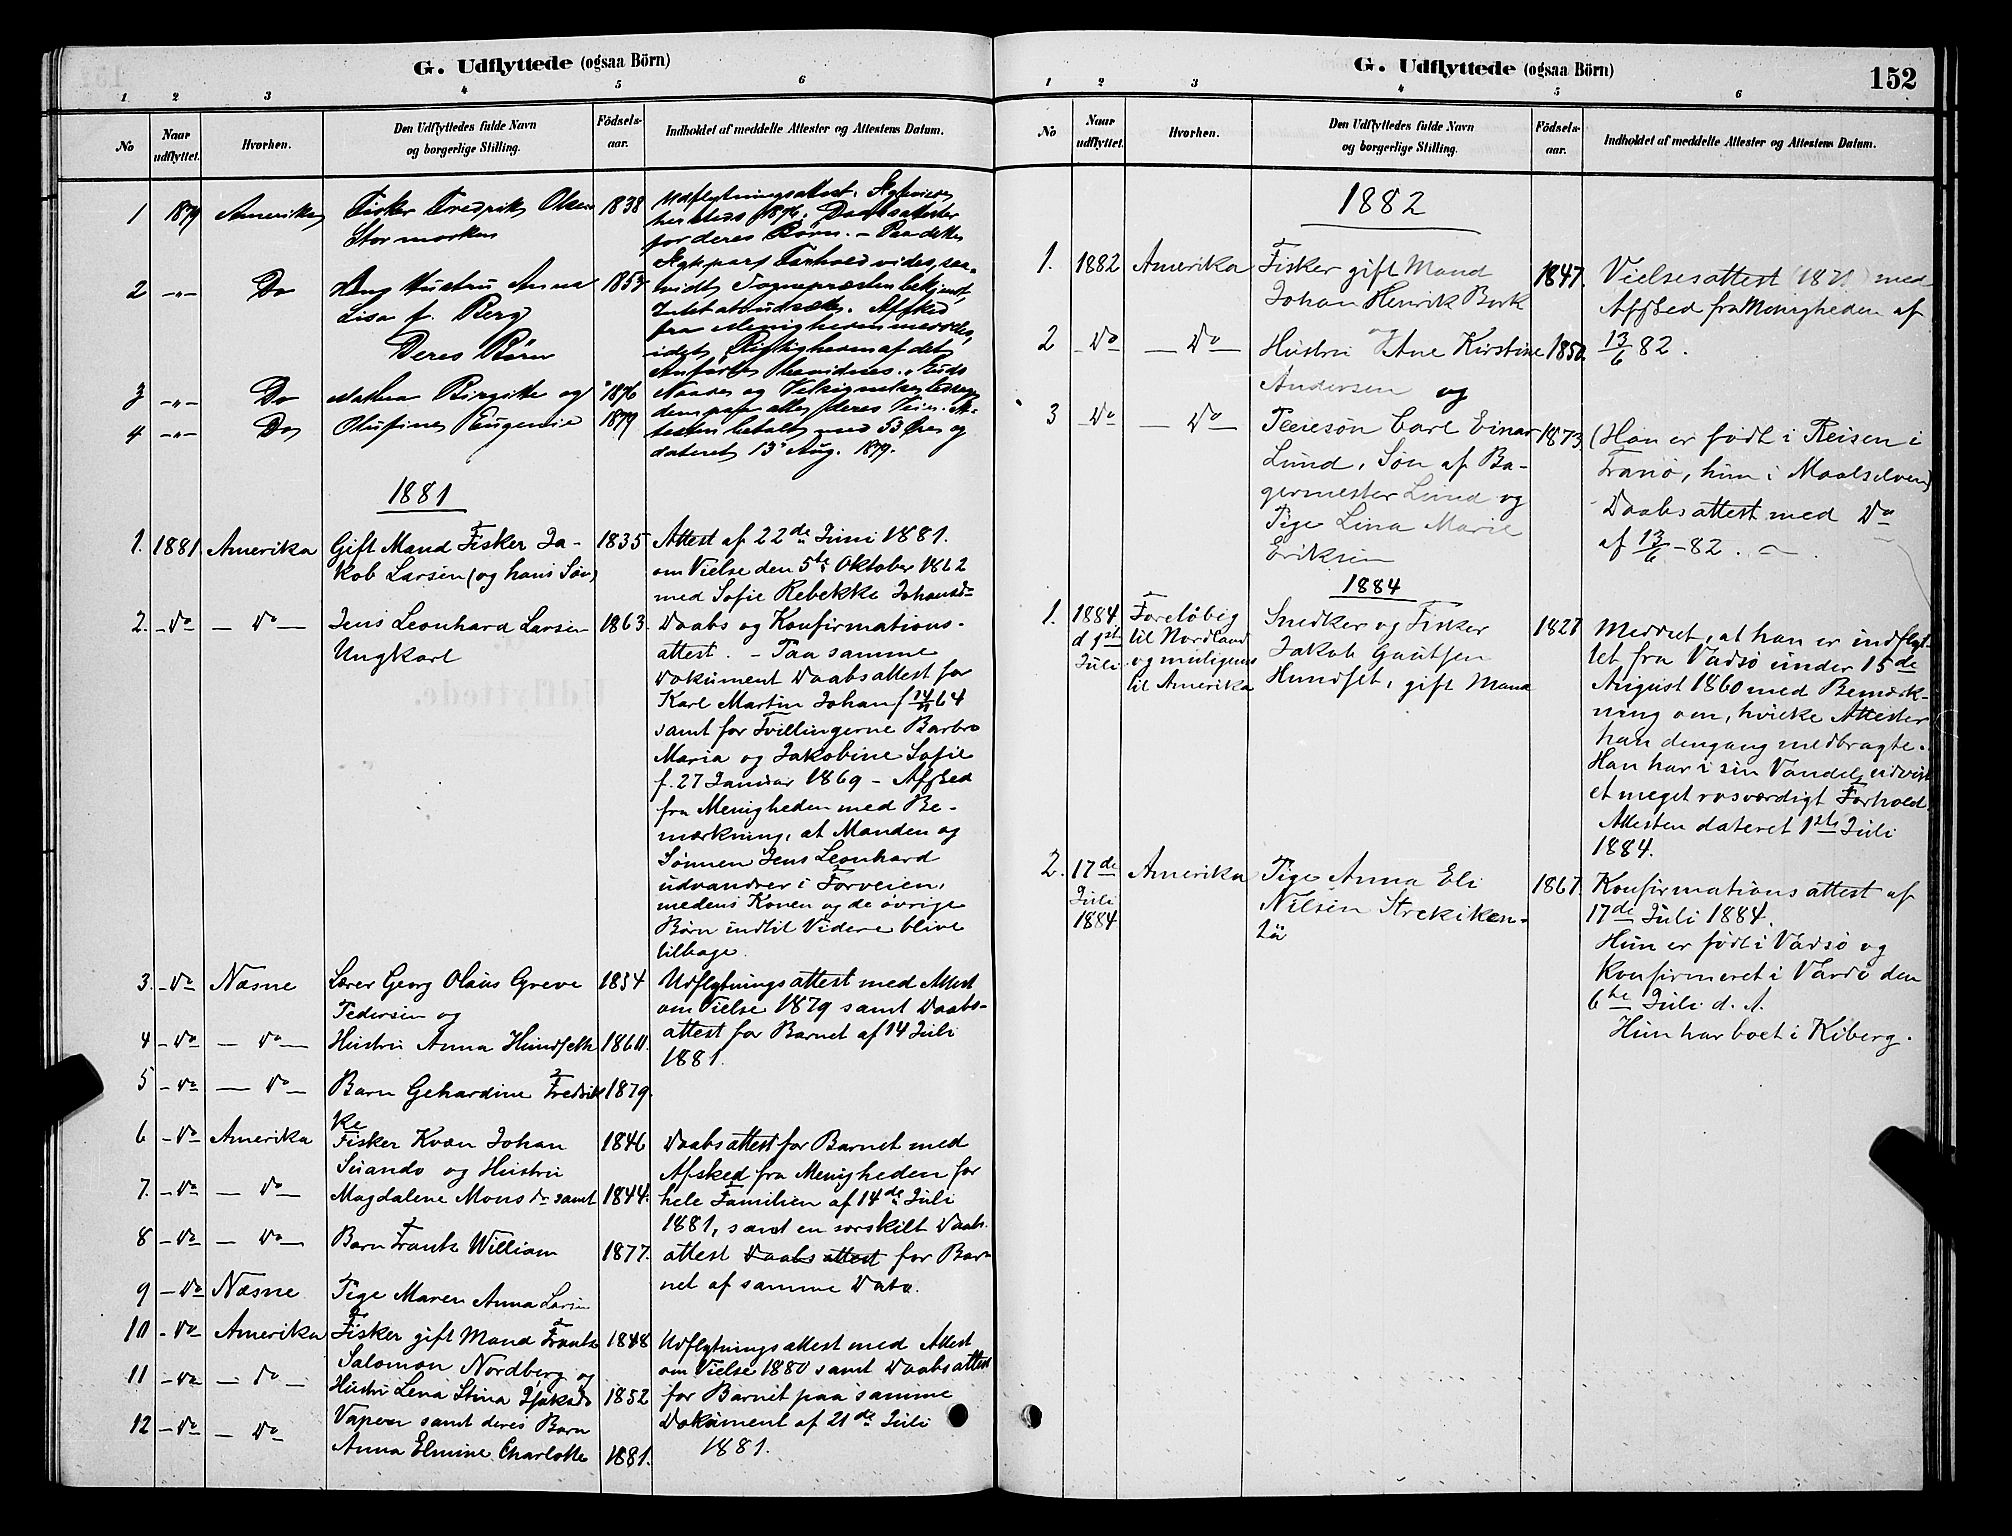 G. Udflyttede (ogsaa Börn)
1 2 3 4 5 6
No
Naar udflyttet.
Hvorhen.
Den Udflyttedes fulde Navn og borgerlige Stilling.
Födsels-aar.
Indholdet af meddelte Attester og Attestens Datum.
1 1879 Amerika Fisker Fredrik Olsen 1838 Udflytningsattest.
Stormorken
her Daabsattester
for deres Børn. – Paa dette
2 –"– Do Hans Hustru Anna 1854
Lisa f. Berg
Deres Børn
3 –"– Do Mathea Birgitte og 1876
4 –"– Do Olufine Eugenie 1879
vides, saa-
vidt Sognepræsten bekjendt,
Afsked
fra Menigheden meddeles,
idet Rigtigheden af det
Anførte bevidnes. Guds
Naade og Velsignelse
dem paa alle deres Veie. At-
testen betalt med 53 Øre og
dateret 13 Aug. 1879.
1881
1. 1881. Amerika Gift Mand Fisker Ja- 1835 Attest af 22de Juni 1881.
kob Larsen (og hans Søn) om Vielse den 5te Oktober 1862
med Sofie Rebekke Johansdr
2. – Do – – Do – Jens Leonhard Larsen 1863. Daabs og Konfirmations-
Ungkarl attest. – Paa samme
Dokument Daabsattest for
Karl Martin Johan f 64
samt for Tvillingerne Barbro
Maria og Jakobine Sofie
f. 27 Januar 1869 – Afsked
fra Menigheden med Be-
mærkning, at Manden og
Sønnen Jens Leonhard
udvandrer i Forveien,
medens Konen og de øvrige
Børn indtil Videre blive
tilbage.
3. – Do Næsne Lærer Georg Olaus Greve 1854 Udflytningsattest med Attest
Pedersen og om Vielse 1879 samt Daabs-
4 – Do – Do – Hustru Anna Hundseth 1860. attest for Barnet af 14 Juli
1881.
5 – Do – Do – Barn Gehardine Fredrik 1879.
ke
6 – Do Amerika Fisker Kvæn Johan 1846 Daabsattest for Barnet med
Suando og Hustru Afsked fra Menigheden for
7. – Do – Do – Magdalene Mons dr samt 1844. hele Familien af 14de Juli
1881, samt en særskilt Daabs-
8 – Do – Do – Barn Frank William 1877. attest Daabsattest for Bar
net af samme Dato.
9 – Do Næsne Pige Maren Anna Larsen
10 – Do Amerika Fisker gift Mand Frants 1848 Udflytningsattest med Attest
Salomon Nordberg og om Vielse 1880 samt Daabsattest
11 – Do – Do – Hustru Lena Stina 1852 for Barnet paa samme
samt deres Barn Dokument af 21de Juli
12 – Do – Do Anna Elmine Charlotte 1881. 1881.
G. Udflyttede (ogsaa Börn)
152
1 2 3 4 5 6
No
Naar udflyttet.
Hvorhen.
Den Udflyttedes fulde Navn og borgerlige Stilling.
Födsels-aar.
Indholdet af meddelte Attester og Attestens Datum.
1882
1. 1882 Amerika Fisker gift Mand 1847. Vielsesattest (1871) med
Johan Henrik Bork Afsked fra Menigheden af
og
2 – Do – Do – Hustru Ane Kirstine 1850. 13/6 82.
Andersen og
3 – Do – Do – Pleiesøn Carl Einar 1873 (Han er født i Reisen i
Lund, Søn af Ba- Tranø, hun i Maalselven)
germester Lund og Daabsattest med Do
Pige Lina Marie af 13/6 – 82.
Eriksen
1884
1. 1884 d 1ste Juli Foreløbig Snedker og Fisker 1827 Meddelt, at han er indflyt-
til Nordland Jakob Gautsen tet fra Vadsø under 15de
og muligens Hundset, gift Mand August 1860 med Bemærk-
til Amerika ning om, hvilke Attester
han dengang medbragte.
Han har i sin Vandel udvist
et meget rosværdigt Forhold.
Attesten dateret 1ste Juli
1884.
2. 17de Juli 1884 Amerika Pige Anna Eli 1867. Konfirmationsattest af
Nilsen 17de Juli 1884.
Hun er født i Vadsø og
Konfirmeret i Vardø den
6te Juli d. A.
Hun har boet i Kiberg.